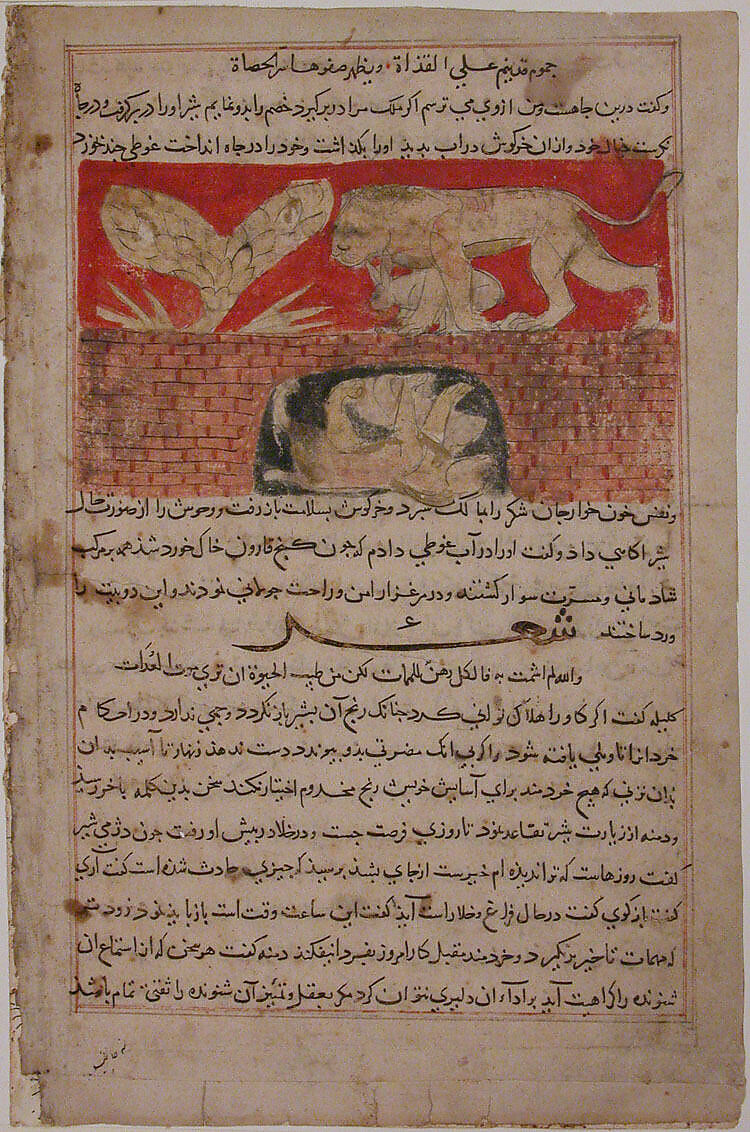 جموم قد ینم علی القذاة ویظهر صفوها سر الحصاة
وکفت درین جاهست ومن ازوی می ترسم اکر ملک مرا دربر کیرد خصم را بدو نمایم شیر اورا دربر کرفت ودرجاه
نکرست خیال خود وازان خرکوش دراب بدید اورا بکذاشت وخود را درجاه انداخت غوطی جند خورد
ونفس خون خوار جان شکر را بمالک سبرد وخرکوش بسلامت باز رفت ووحوش را از صورت حال
شیر اکاهی داد وکفت اورا در آب غوطی دادم که جون کنج قارون خاک خورد شد همه بر مرکب
شادمانی ومسرت سوار کشتند ودر مرغزار امن وراحت جولانی نمودند واین دو بیت را
ورد ساختند شعر
والله لم اشمت به فالکل رهن للممات لکن من طیب الحیوة ان تری موت العداة
کلیله کفت اکر کاو را هلاک توانی کرد جنانک رنج آن بشیر باز نکردد وجهی ندارد ودر احکام
خرد انرا تاویلی یافته شود واکر بی انک مضرتی بدو بیوندد دست ندهد زنهار تا آسیب بدان
بدان نزنی که هیچ خردمند برای آسایش خویش رنج مخدوم اختیار نکند سخن بدین کلمه باخر رسید
ودمنه از زیارت شیر تقاعد نمود تا روزی فرصت جست ودر خلا دربیش او رفت جون دژمی شیر
کفت روزهاست که ترا ندیده ام خیر ست ازجای بشد برسید که جیزی حادث شده است کفت آری
کفت باز کوی کفت درحال فراغ وخلا راست آید کفت این ساعت وقت است باز باید نمود زودتر
که مهمات تاخیر برنکیرد وخردمند مقبل کار امروز بفردا نیفکند دمنه کفت هر سخن که از استماع ان
شنونده را کراهیت آید بر اداء ان دلیری نتوان کرد مکر بعقل وتمییز آن شنونده را ثقتی تمام باشد